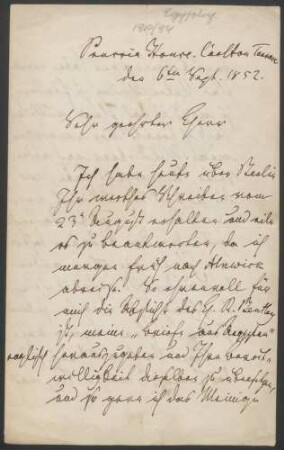 Prussia House. Carlton Terrace
den 6ten Sept. 1852.
Sehr geehrter Herr
Ich habe heute über Berlin
Ihr werthes Schreiben vom
23t August erhalten und eile
es zu beantworten, da ich
morgen früh nach Alnwick
abreise. So ehrenvoll für
mich die Absicht des H.
ist, meine „Briefe aus Aegypten"
englisch herauszugeben und Ihre Bereit-
willigkeit dieselben zu übersetzen,
und so gern ich das Meinige